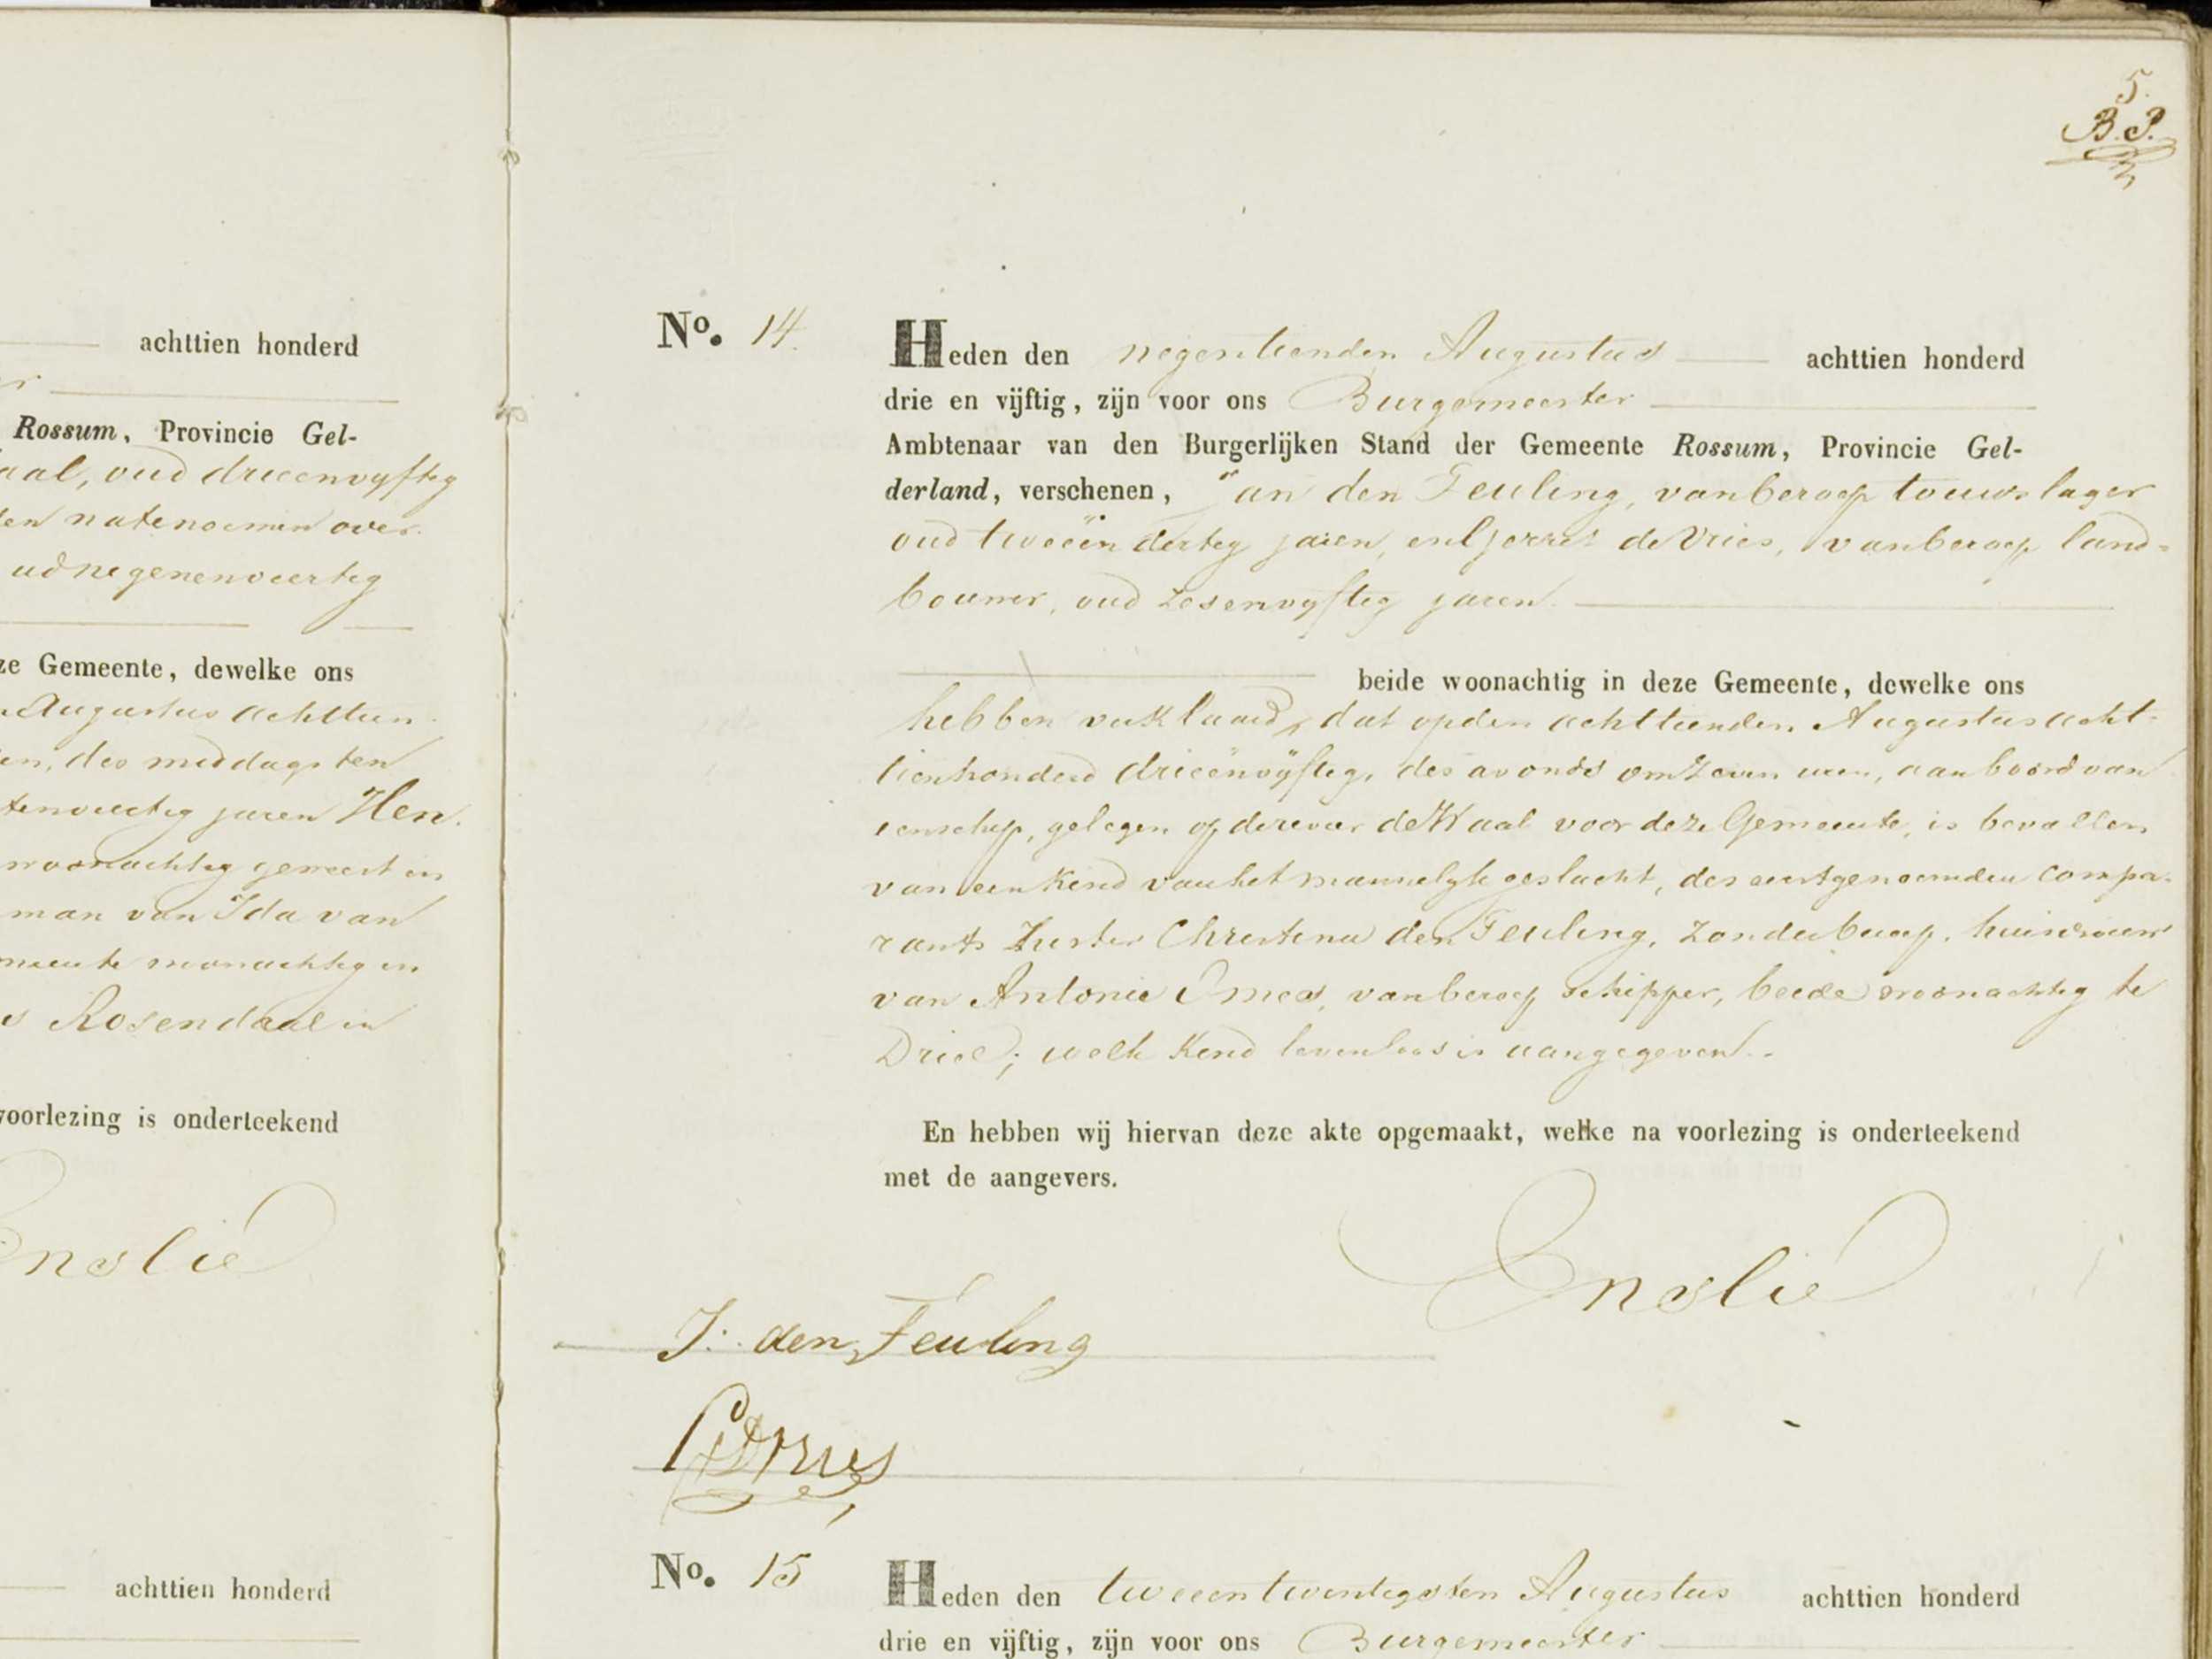 achttien honderd
Rossum, Provincie Gel-
aal, oud drieenvyftig
ten natenoemen over.
ud negenenveertig
ze Gemeente, dewelke ons
Augustus achttien
en, des middags ten
tenveertig jaren Hen.
woonachtig geweest in
man van Ida van
meente woonachtig en
s Rosendaal in
voorlezing is onderteekend
Enslie
achttien honderd
5.
B.P.
No. 14.
Heden den negentienden Augustus achttien honderd
drie en vijftig, zijn voor ons Burgemeester
Ambtenaar van den Burgerlijken Stand der Gemeente Rossum, Provincie Gel-
derland, verschenen, Jan den Teuling, van beroep touwslager
oud tweeën dertig jaren, en Gerrit de Vries, van beroep land=
bouwer, oud zesenvyftig jaren.
beide woonachtig in deze Gemeente, dewelke ons
hebben verklaard, dat op den achttienden Augustus acht-
tienhonderd drieënvÿftig, des avonds om zeven uren, aan boord van
een schip, gelegen op de rivier de Waal voor deze Gemeente, is bevallen
van een Kind van het mannelyk geslacht, des eerstgenoemden compa-
rants Zuster Christina den Teuling, zonder beroep, huisvrouw
van Antonie Smes, van beroep schipper, beide woonachtig te
Driel; welk Kind levenloos is aangegeven.
En hebben wij hiervan deze akte opgemaakt, welke na voorlezing is onderteekend
met de aangevers.
Enslie
J. den Teuling
GDVries
No. 15
Heden den tweeentwintigsten Augustus achttien honderd
drie en vijftig, zijn voor ons Burgemeester